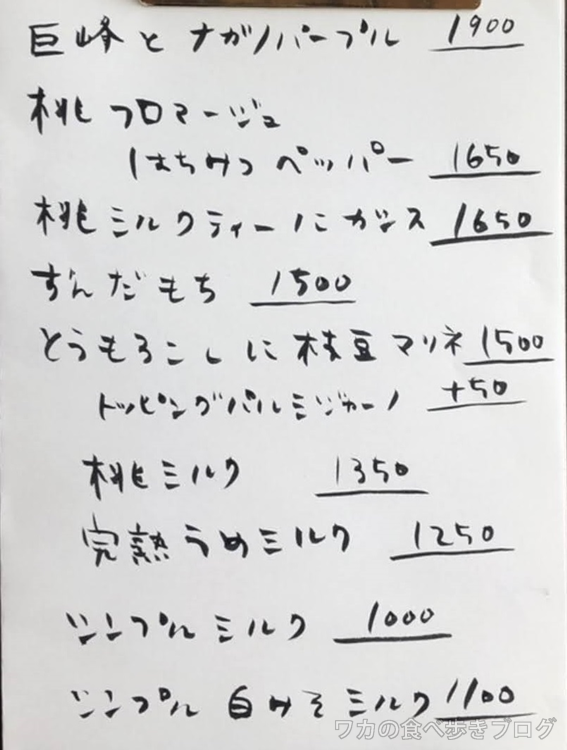 巨峰とナガノパープル 1900
桃フロマージュ
はちみつペッパー 1650
桃ミルクティーにガンス 1650
ずんだもち 1500
とうもろこしに枝豆マリネ 1500
トッピングパルミジャーノ +50
桃ミルク 1350
完熟うめミルク 1250
シンプルミルク 1000
シンプル白みそミルク 1100
ワカの食べ歩きブログ